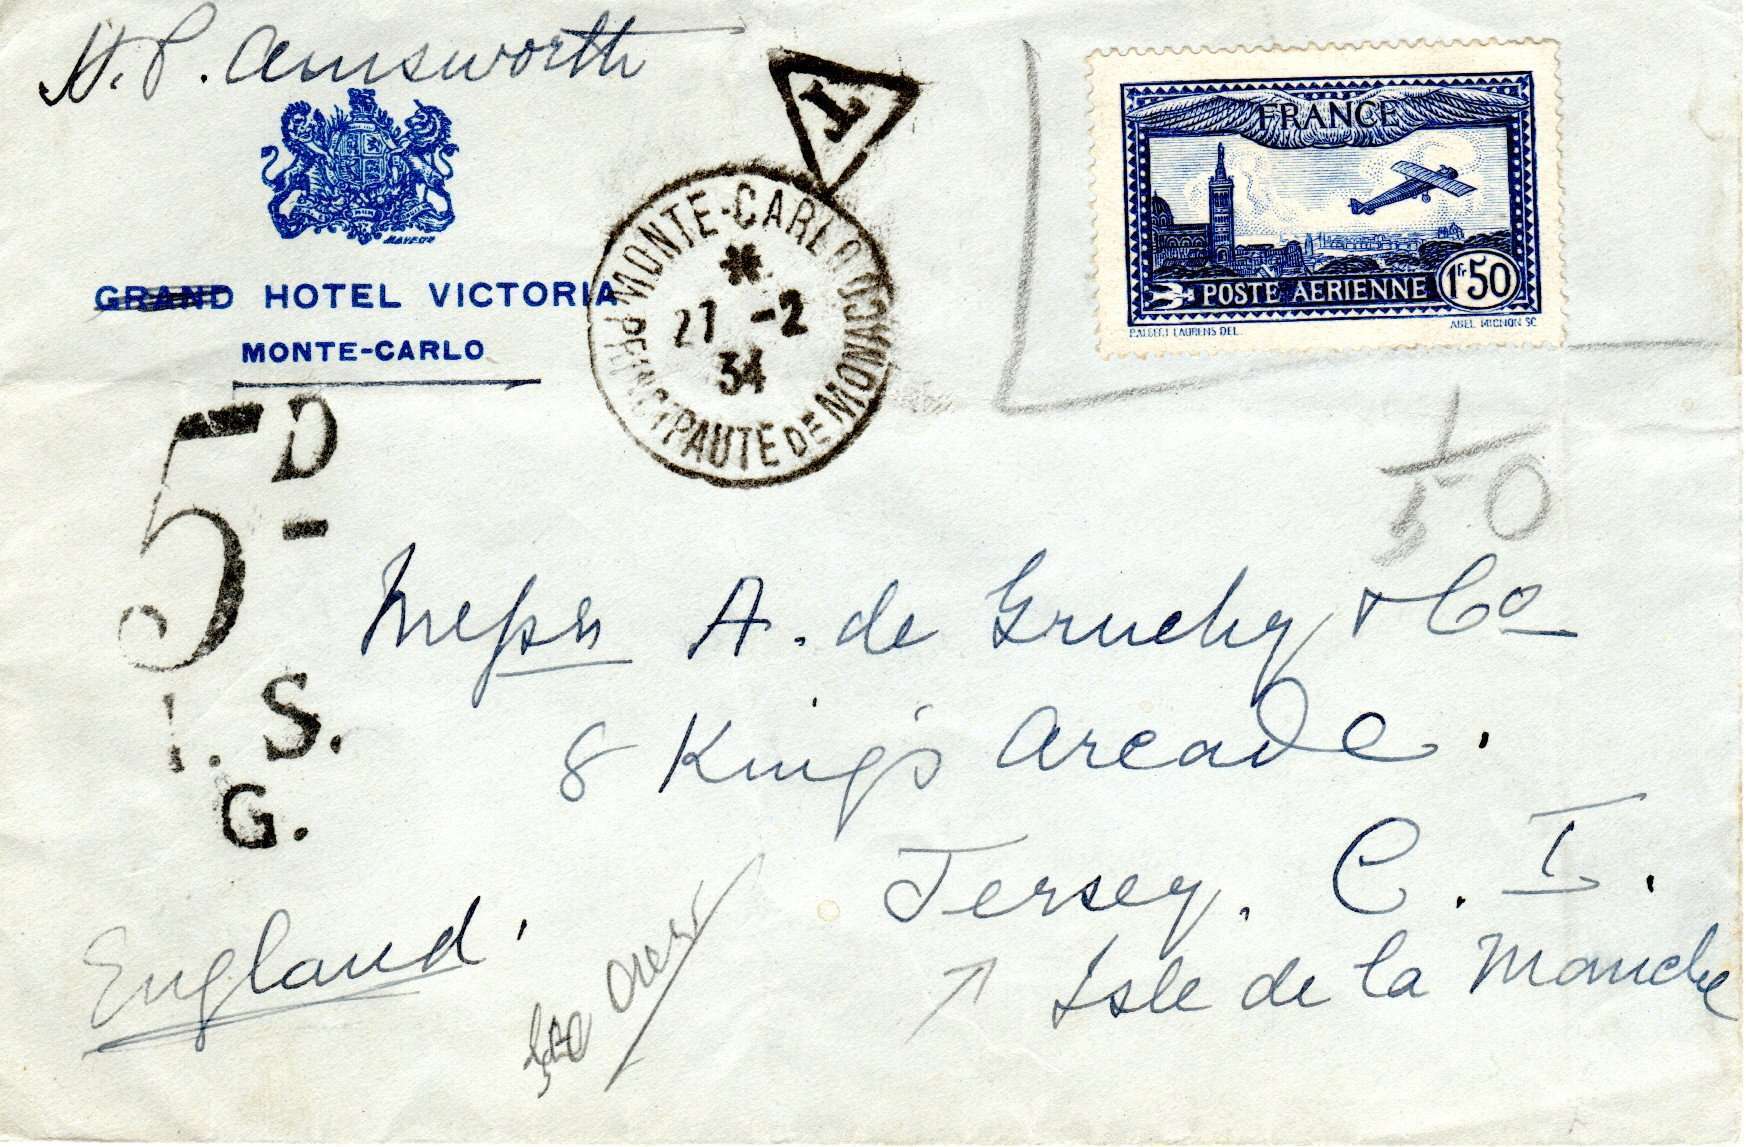 H. P. Ainsworth
T
FRANCE
POSTE AERIENNE 1fr50
P. ALBERT LAURENS DEL. ABEL MIGNON SC.
GRAND HOTEL VICTORIA
MONTE-CARLO
MONTE-CARLO
27 -2
34
PRINCIPAUTE DE MONACO
5D
I.S.
G.
1/50
Messrs A. de Gruchy & Co
8 King's Arcade.
Jersey. C. I.
Isle de la Manche
England.
See over